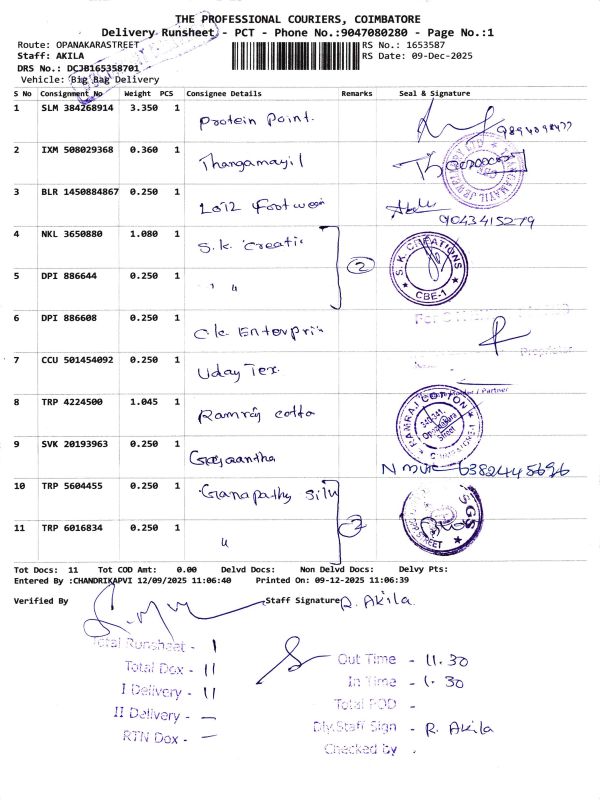 THE PROFESSIONAL COURIERS, COIMBATORE
Delivery Runsheet - PCT - Phone No.:9047080280 - Page No.:1
Route: OPANAKARASTREET RS No.: 1653587
Staff: AKILA RS Date: 09-Dec-2025
DRS No.: DCJB165358701
Vehicle: Big Bag Delivery
S No Consignment No Weight PCS Consignee Details Remarks Seal & Signature
1 SLM 384268914 3.350 1 Protein Point.
2 IXM 508029368 0.360 1 Thangamayil
3 BLR 1450884867 0.250 1 Footwear 9043415279
4 NKL 3650880 1.080 1 S.K. Creatic 2 S.K. CREATIONS CBE-1
5 DPI 886644 0.250 1 " "
6 DPI 886608 0.250 1 C.K. Enterpris For
Proprietor
7 CCU 501454092 0.250 1 Uday Tex.
/ Partner
8 TRP 4224500 1.045 1 Ramraj cotto RAMRAJ COTTON 340-341, Oppanakara Street COIMBATORE-1
9 SVK 20193963 0.250 1 6382445696
10 TRP 5604455 0.250 1 Ganapathy Silk 2 SGS STREET
11 TRP 6016834 0.250 1 "
Tot Docs: 11 Tot COD Amt: 0.00 Delvd Docs: Non Delvd Docs: Delvy Pts:
Entered By :CHANDRIKAPVI 12/09/2025 11:06:40 Printed On: 09-12-2025 11:06:39
Verified By Staff Signature R. Akila
Total Runsheet - 1
Total Dox - 11
I Delivery - 11
II Delivery - —
RTN Dox - —
Out Time - 11.30
In Time - 1.30
Total POD -
Dly.Staff Sign - R. Akila
Checked by -